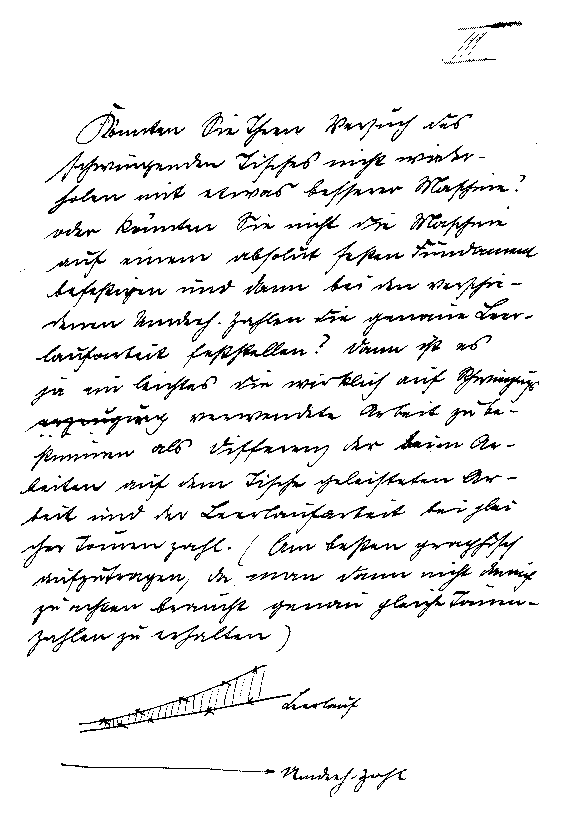 III
Könnten Sie Ihren Versuch des
schwingenden Tisches nicht wieder-
holen mit etwas besserer Maschine?
oder könnten Sie nicht die Maschine
auf einem absolut festen Fundament
befestigen und dann bei den verschie-
denen Umdreh. Zahlen die genaue Leer-
laufarbeit feststellen? Dann ist es
ja ein leichtes die wirklich auf Schwingungs
erzeugung verwendete Arbeit zu be-
stimmen als Differenz der beim Ar-
beiten auf dem Tische geleisteten Ar-
beit und der Leerlaufarbeit bei glei
cher Touren zahl. (Am besten graphisch
aufzutragen, da man dann nicht darauf
zu achten braucht genau gleiche Touren-
zahlen zu erhalten)
Leerlauf
Umdreh. Zahl